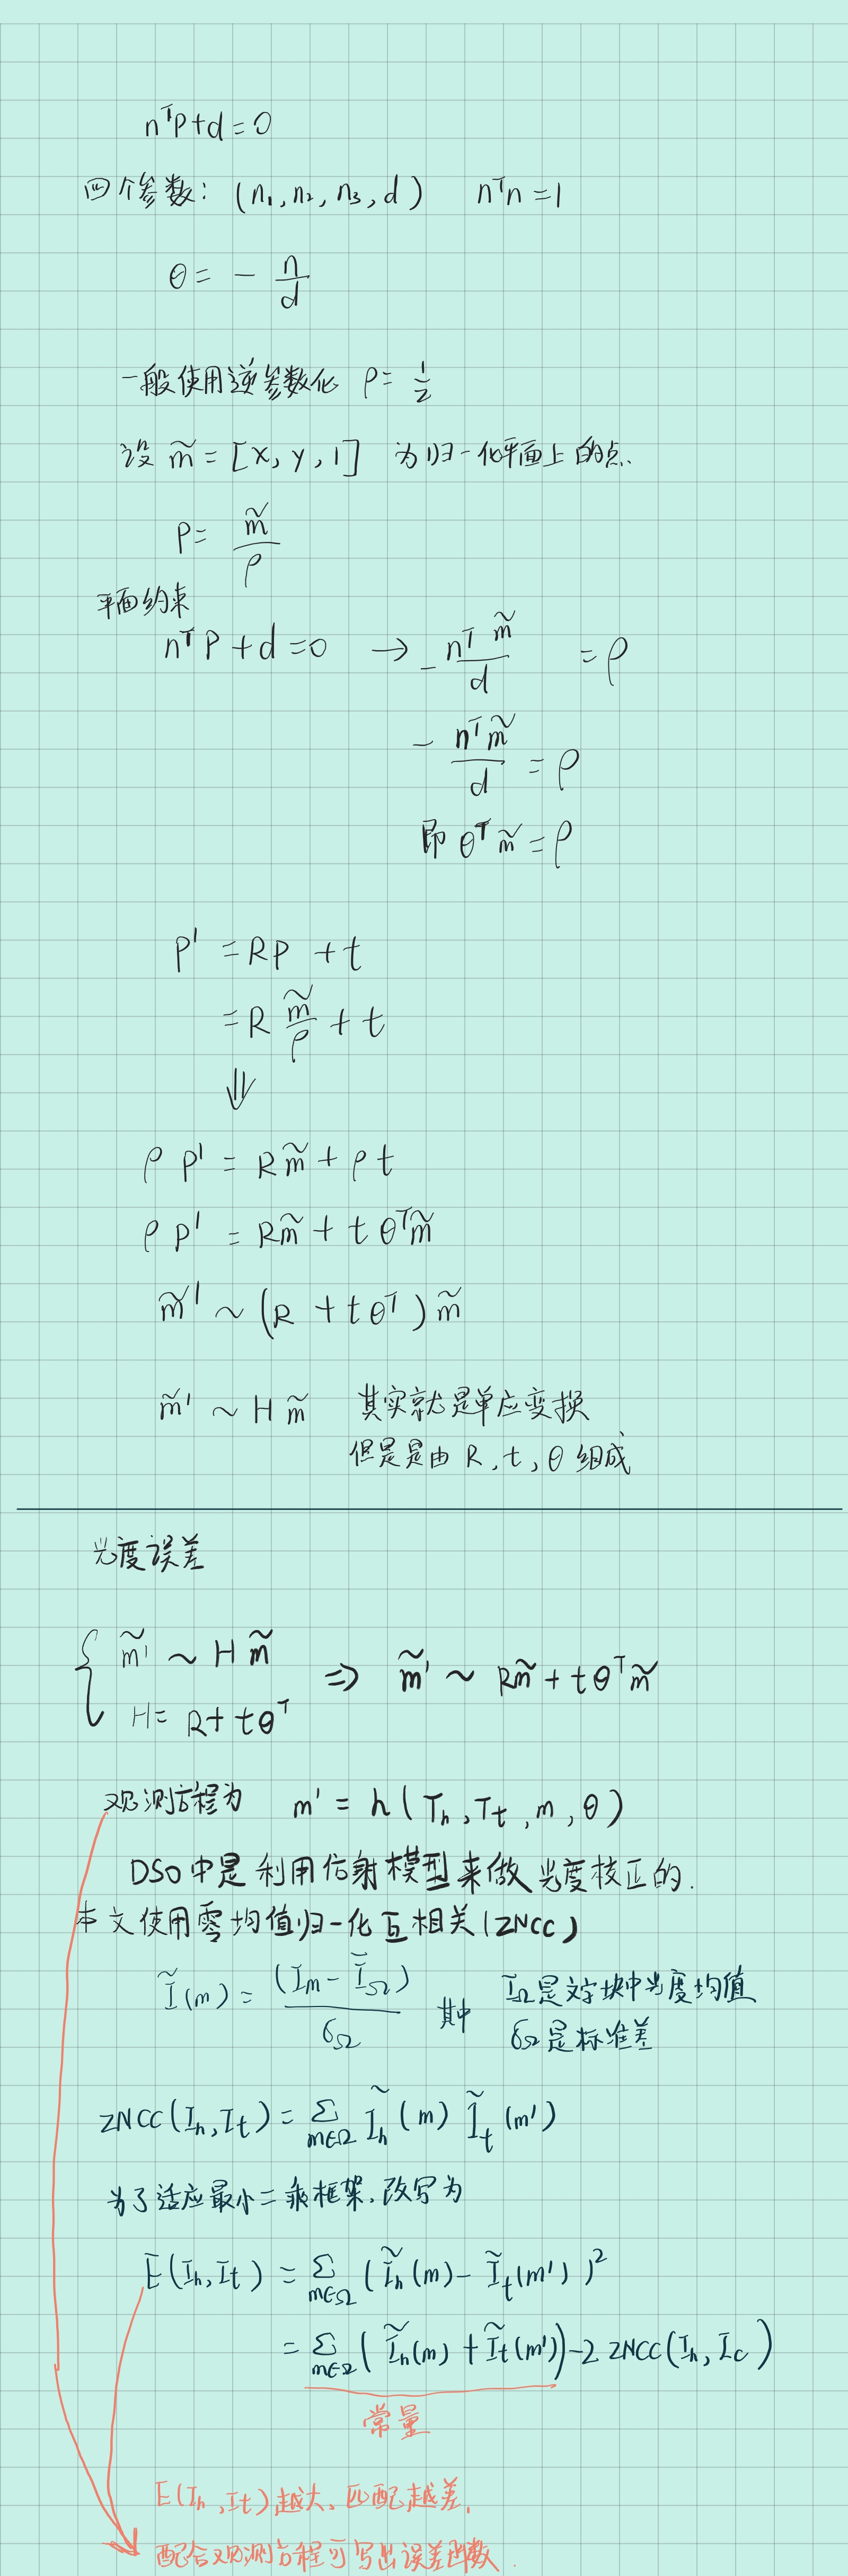 nᵀP+d=0
四个参数: (n₁, n₂, n₃, d) nᵀn=1
θ = - n/d
一般使用逆参数化 ρ = 1/z
设 m̃ = [x, y, 1] 为归一化平面上的点.
P = m̃/ρ
平面约束
nᵀP+d=0 → - nᵀm̃/d = ρ
- nᵀm̃/d = ρ
即 θᵀm̃ = ρ
P' = RP + t
= R m̃/ρ + t
⇓
ρP' = Rm̃ + ρt
ρP' = Rm̃ + tθᵀm̃
m̃' ~ (R + tθᵀ)m̃
m̃' ~ Hm̃ 其实就是单应变换
但是是由 R, t, θ 组成
光度误差
{ m̃' ~ Hm̃
H = R + tθᵀ ⇒ m̃' ~ Rm̃ + tθᵀm̃
观测方程为 m' = h(Tₕ, Tₜ, m, θ)
DSO中是利用仿射模型来做光度校正的.
本文使用零均值归一化互相关(ZNCC)
Ĩ(m) = (Iₘ - Ī_Ω)/σ_Ω 其中 Ī_Ω是文字块中光度均值
σ_Ω是标准差
ZNCC(Iₕ, Iₜ) = Σ_{m∈Ω} Ĩₕ(m) Ĩₜ(m')
为了适应最小二乘框架, 改写为
E(Iₕ, Iₜ) = Σ_{m∈Ω} (Ĩₕ(m) - Ĩₜ(m'))²
= Σ_{m∈Ω} (Ĩₕ(m) + Ĩₜ(m')) - 2 ZNCC(Iₕ, I_c)
常量
E(Iₕ, Iₜ) 越大、匹配越差.
配合观测方程可写出误差函数.